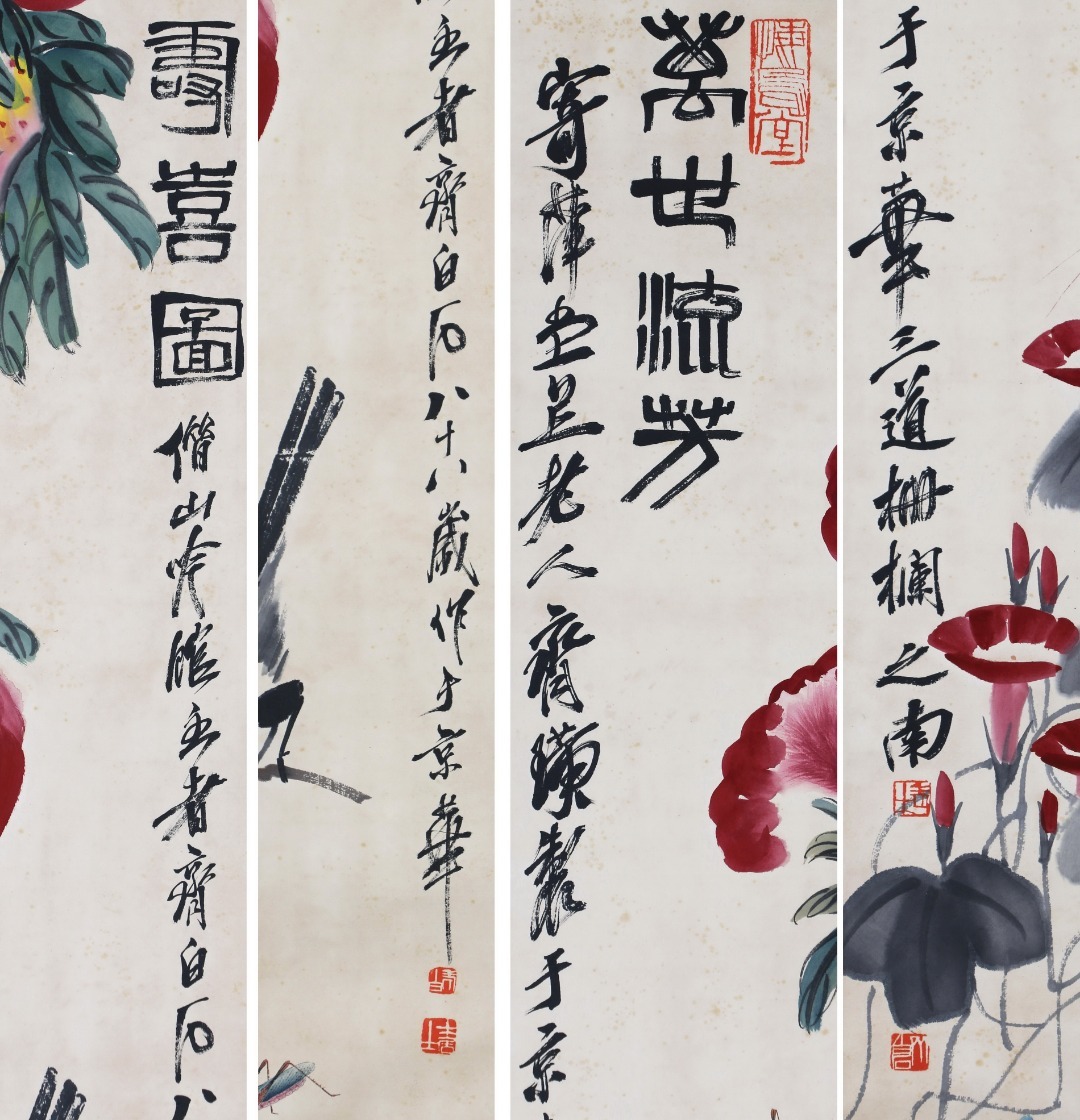 壽喜圖
借山吟館主者齊白石八
主者齊白石八十八歲作于京華
萬世流芳
寄萍堂上老人齊璜製于京
于京華三道柵欄之南